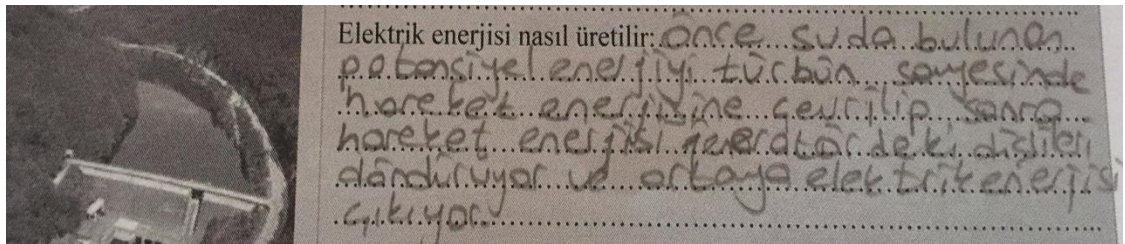 Elektrik enerjisi nasıl üretilir: Önce suda bulunan
potansiyel enerjiyi türbün sayesinde
hareket enerjisine çevrilip sonra
hareket enerjisi jenerötör deki dişlileri
döndürüyor ve ortaya elektrik enerjisi
çıkıyor.